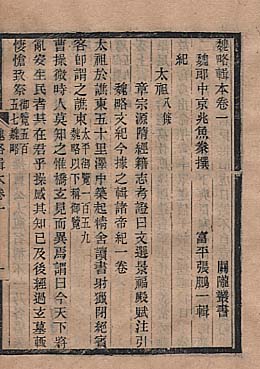 魏略輯本卷一　關隴叢書
魏郎中京兆魚豢撰　富平張鵬一輯
紀
太祖八條
章宗源隋經籍志考證曰文選景福殿賦注引
魏略文紀今據之輯諸帝紀一卷
太祖於譙東五十里澤中築起精舍讀書射獵閉絕賓
客卽謂之譙東太平御覽一百七十五以下稱御覽
曹操微時人莫知之惟橋玄見而異焉謂曰今天下將
亂安生民者其在君乎操感其知已及後經過玄墓輒
悽愴致祭御覽五百五七
魏略輯本卷一　一